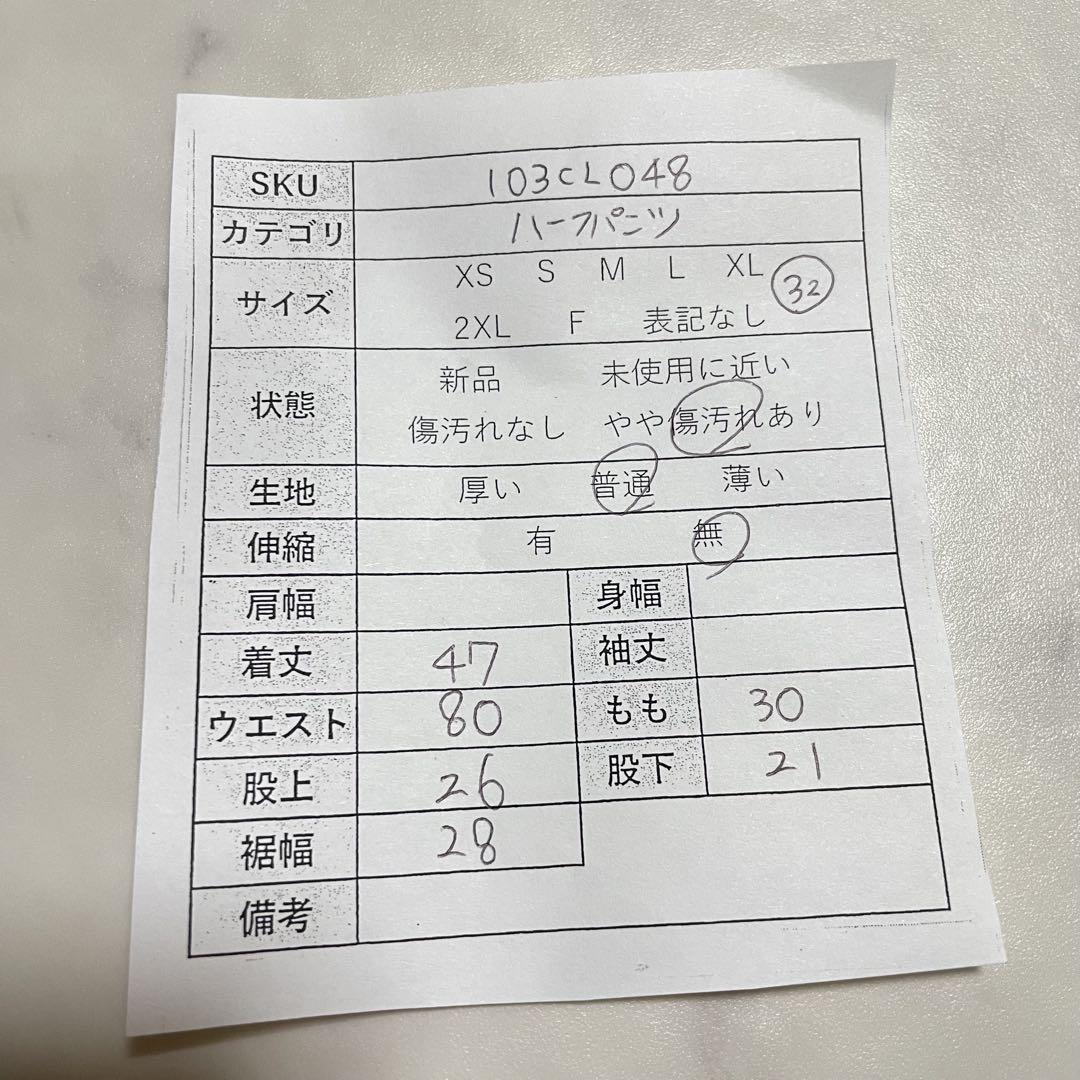 SKU 103CL048
カテゴリ ハーフパンツ
サイズ XS S M L XL 32
2XL F 表記なし
状態 新品 未使用に近い
傷汚れなし やや傷汚れあり
生地 厚い 普通 薄い
伸縮 有 無
肩幅 身幅
着丈 47 袖丈
ウエスト 80 もも 30
股上 26 股下 21
裾幅 28
備考